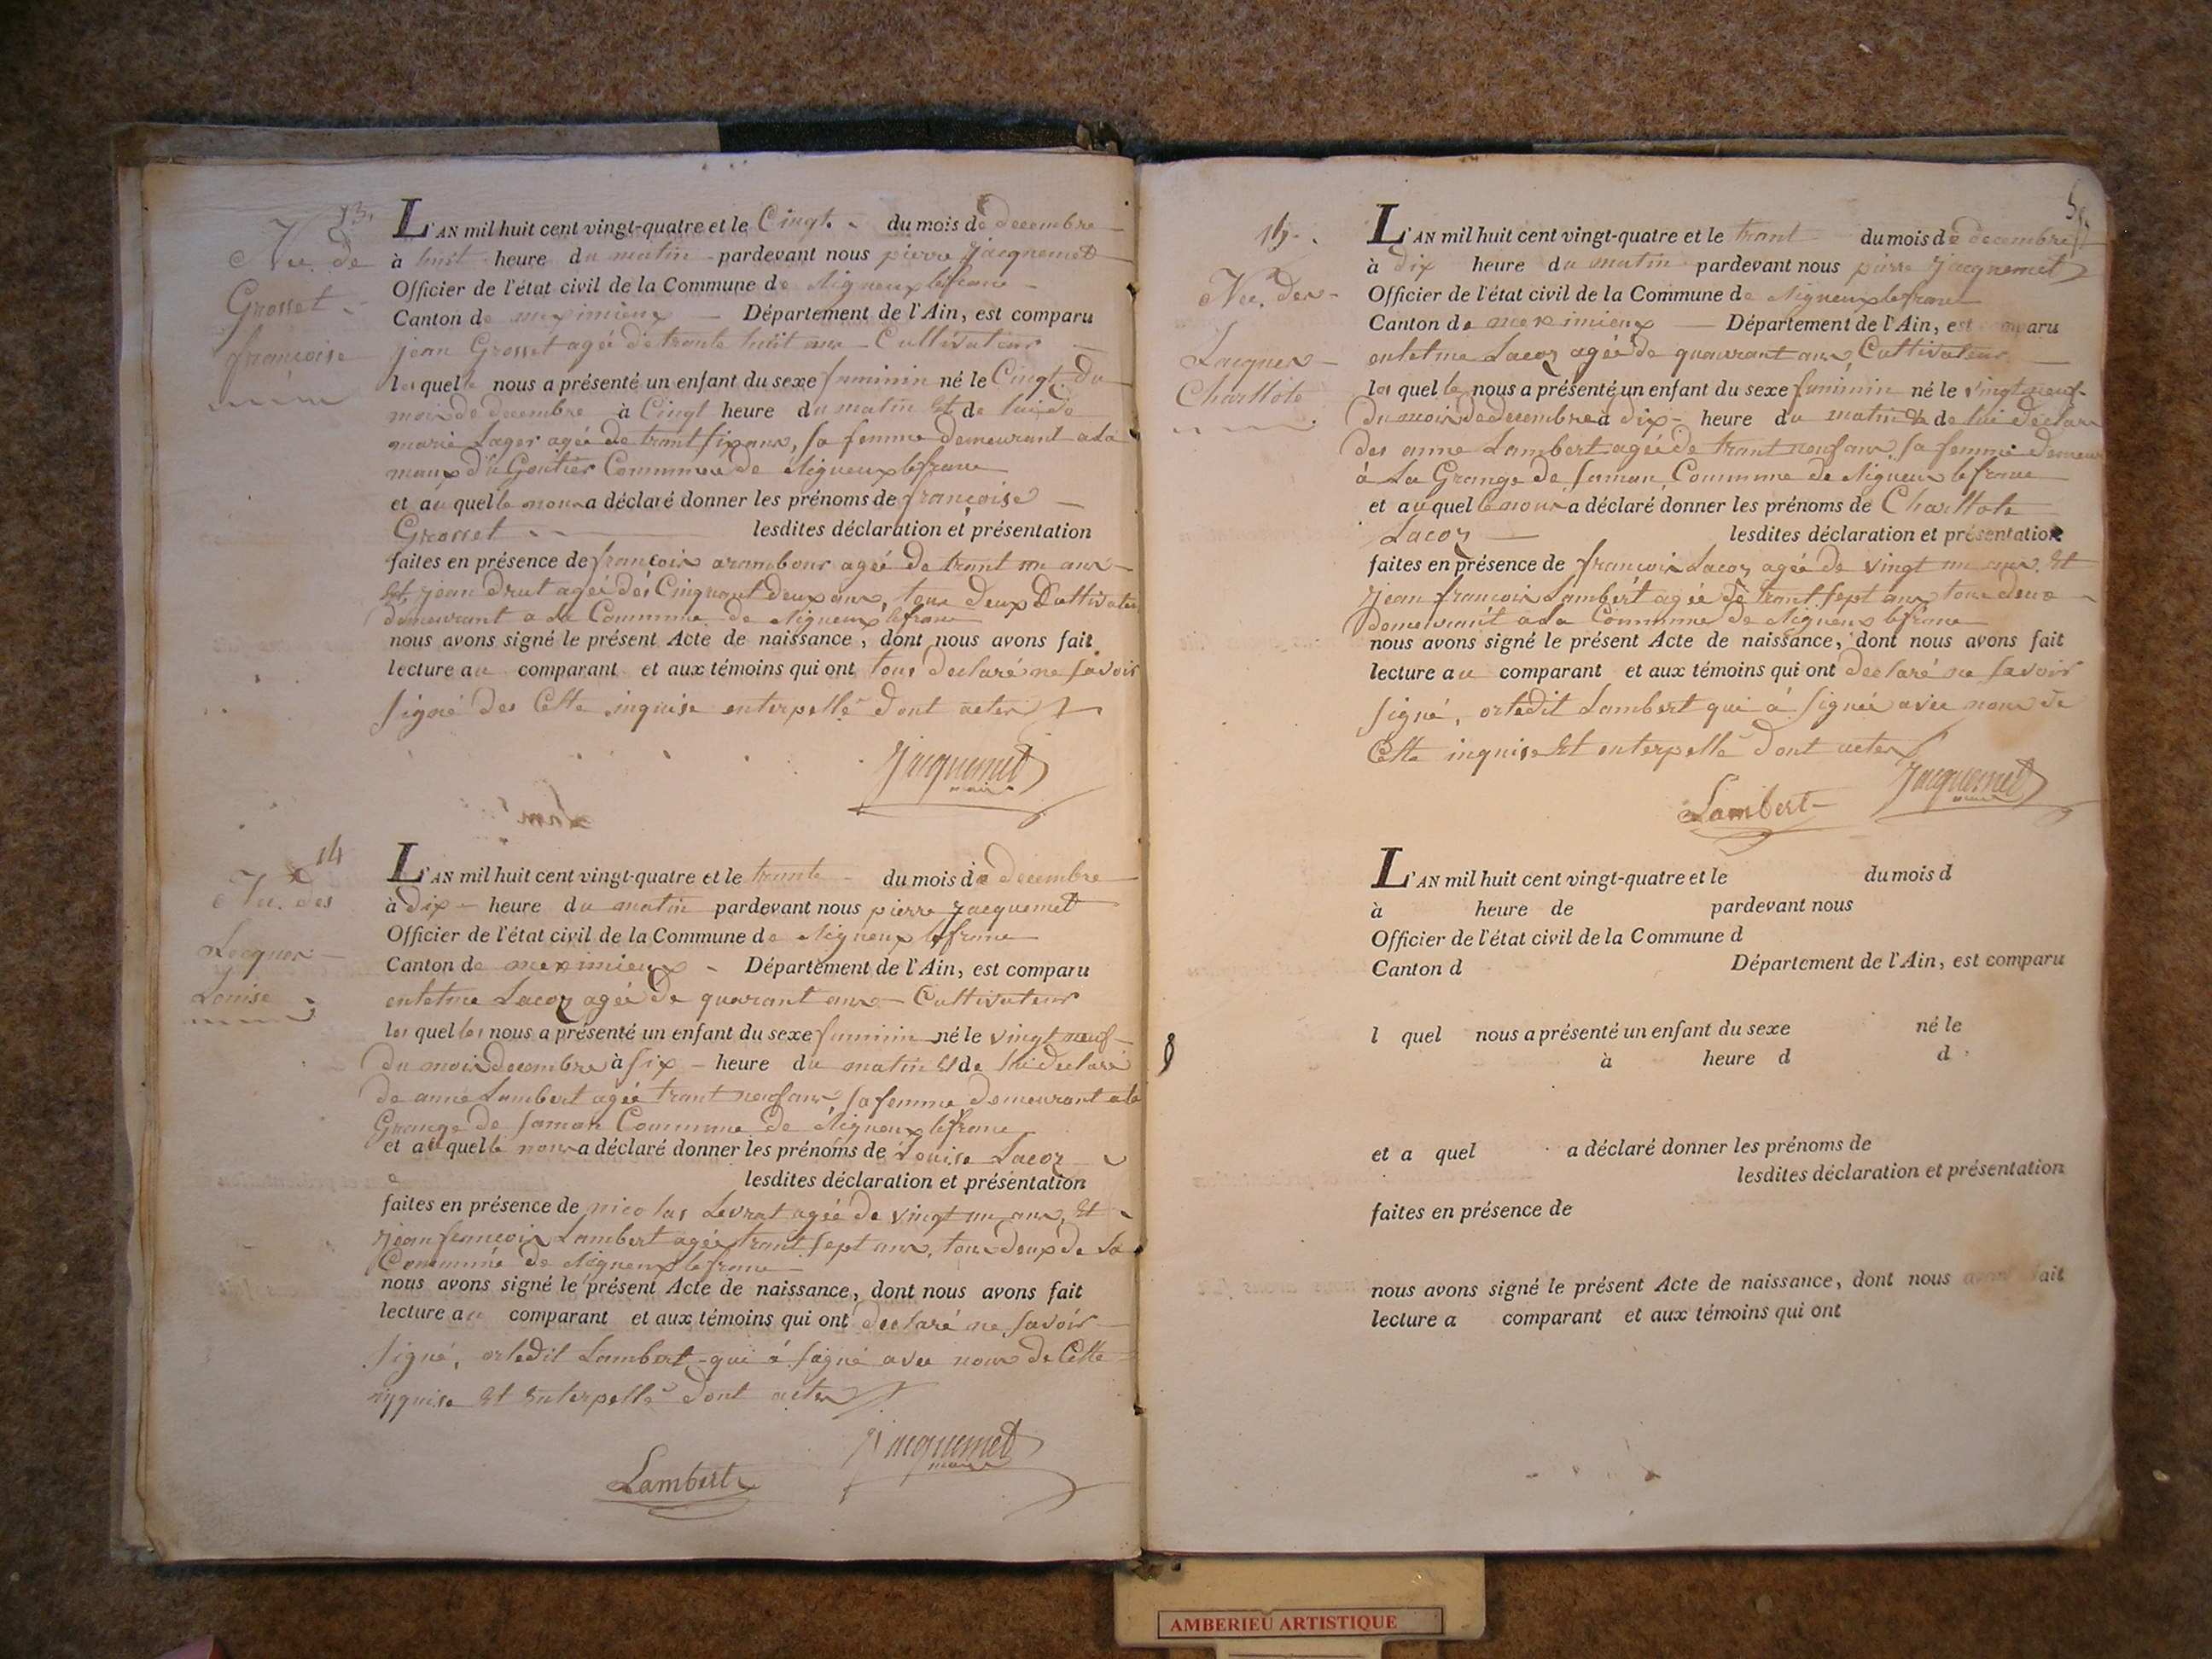 13.
Nee. de
Grosset
françoise
L'AN mil huit cent vingt-quatre et le Cingt. du mois de decembre
à huit heure du matin pardevant nous pierre Jacquemet
Officier de l'état civil de la Commune de
Canton de meximieux Département de l'Ain, est comparu
jean Grosset agée de trante huit ans Cultivateur
lequel nous a présenté un enfant du sexe feminin né le Cingt. du
mois de decembre à Cingt heure du matin Et de lui de
marie Lager agée de trant six ans, sa femme demeurant a la
Commune de
et au quelle nous a déclaré donner les prénoms de françoise
Grosset lesdites déclaration et présentation
faites en présence de françois arambour agée de trant un ans
Et jean drut agée de Cinquant deux ans, tous deux Cultivateur
demeurant a la Commune de
nous avons signé le présent Acte de naissance, dont nous avons fait
lecture au comparant et aux témoins qui ont tous declaré ne savoir
signé des Cette inquise enterpellé dont acter
Jacquemet
maire
14
Nee. des
Louise
L'AN mil huit cent vingt-quatre et le trante du mois de decembre
à dix heure du matin pardevant nous pierre jacquemet
Officier de l'état civil de la Commune de
Canton de meximieux Département de l'Ain, est comparu
Lacoz agée de quarant ans Cultivateur
nous a présenté un enfant du sexe feminin né le vingt neuf
du mois decembre à six heure du matin Et de lui declaré
de anne Lambert agée trant neuf ans, sa femme demeurant a la
Grange de saman Commune de
et au quelle nous a déclaré donner les prénoms de Louise Lacoz
lesdites déclaration et présentation
faites en présence de nicolas Levrat agée de vingt un ans, Et
jean francois Lambert agée trant sept ans, tous deux de la
Commune de
nous avons signé le présent Acte de naissance, dont nous avons fait
lecture au comparant et aux témoins qui ont declaré ne savoir
signé, orledit Lambert qui á signé avec nous de Cette
Et Enterpellé dont acter
Jacquemet
maire
Lambert
Nee. des
Charllote
L'AN mil huit cent vingt-quatre et le trant du mois de decembre
à dix heure du matin pardevant nous pierre jacquemet
Officier de l'état civil de la Commune de
Canton de meximieux Département de l'Ain, est comparu
Lacoz agée de quarant ans Cultivateur
nous a présenté un enfant du sexe feminin né le vingt neuf
du mois de decembre à dix heure du matin Et de lui declaré
des anne Lambert agée de trant neuf ans, sa femme
à La Grange de saman, Commune de
et au quelle nous a déclaré donner les prénoms de Charllote
Lacoz lesdites déclaration et présentation
faites en présence de françois Lacoz agée de vingt un ans. Et
jean francois Lambert agée de trant sept ans tous deux
demeurant a la Commune de
nous avons signé le présent Acte de naissance, dont nous avons fait
lecture au comparant et aux témoins qui ont declaré ne savoir
signé, orledit Lambert qui á signé avec nous de
Cette inquise Et enterpellé dont acter
Jacquemet
maire
Lambert
L'AN mil huit cent vingt-quatre et le du mois d
à heure de pardevant nous
Officier de l'état civil de la Commune d
Canton d Département de l'Ain, est comparu
l quel nous a présenté un enfant du sexe né le
à heure d d
et a quel a déclaré donner les prénoms de
lesdites déclaration et présentation
faites en présence de
nous avons signé le présent Acte de naissance, dont nous avons fait
lecture a comparant et aux témoins qui ont
AMBERIEU ARTISTIQUE